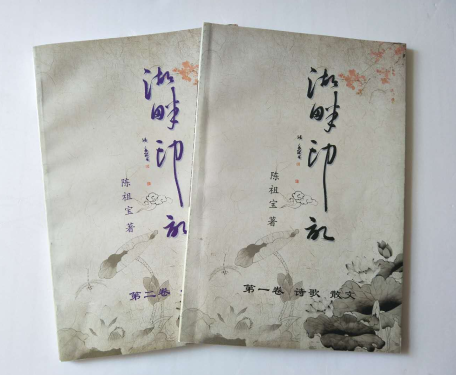 湖畔印记
陈祖宝 著
第二卷
湖畔印记
陈祖宝 著
第一卷 诗歌 散文